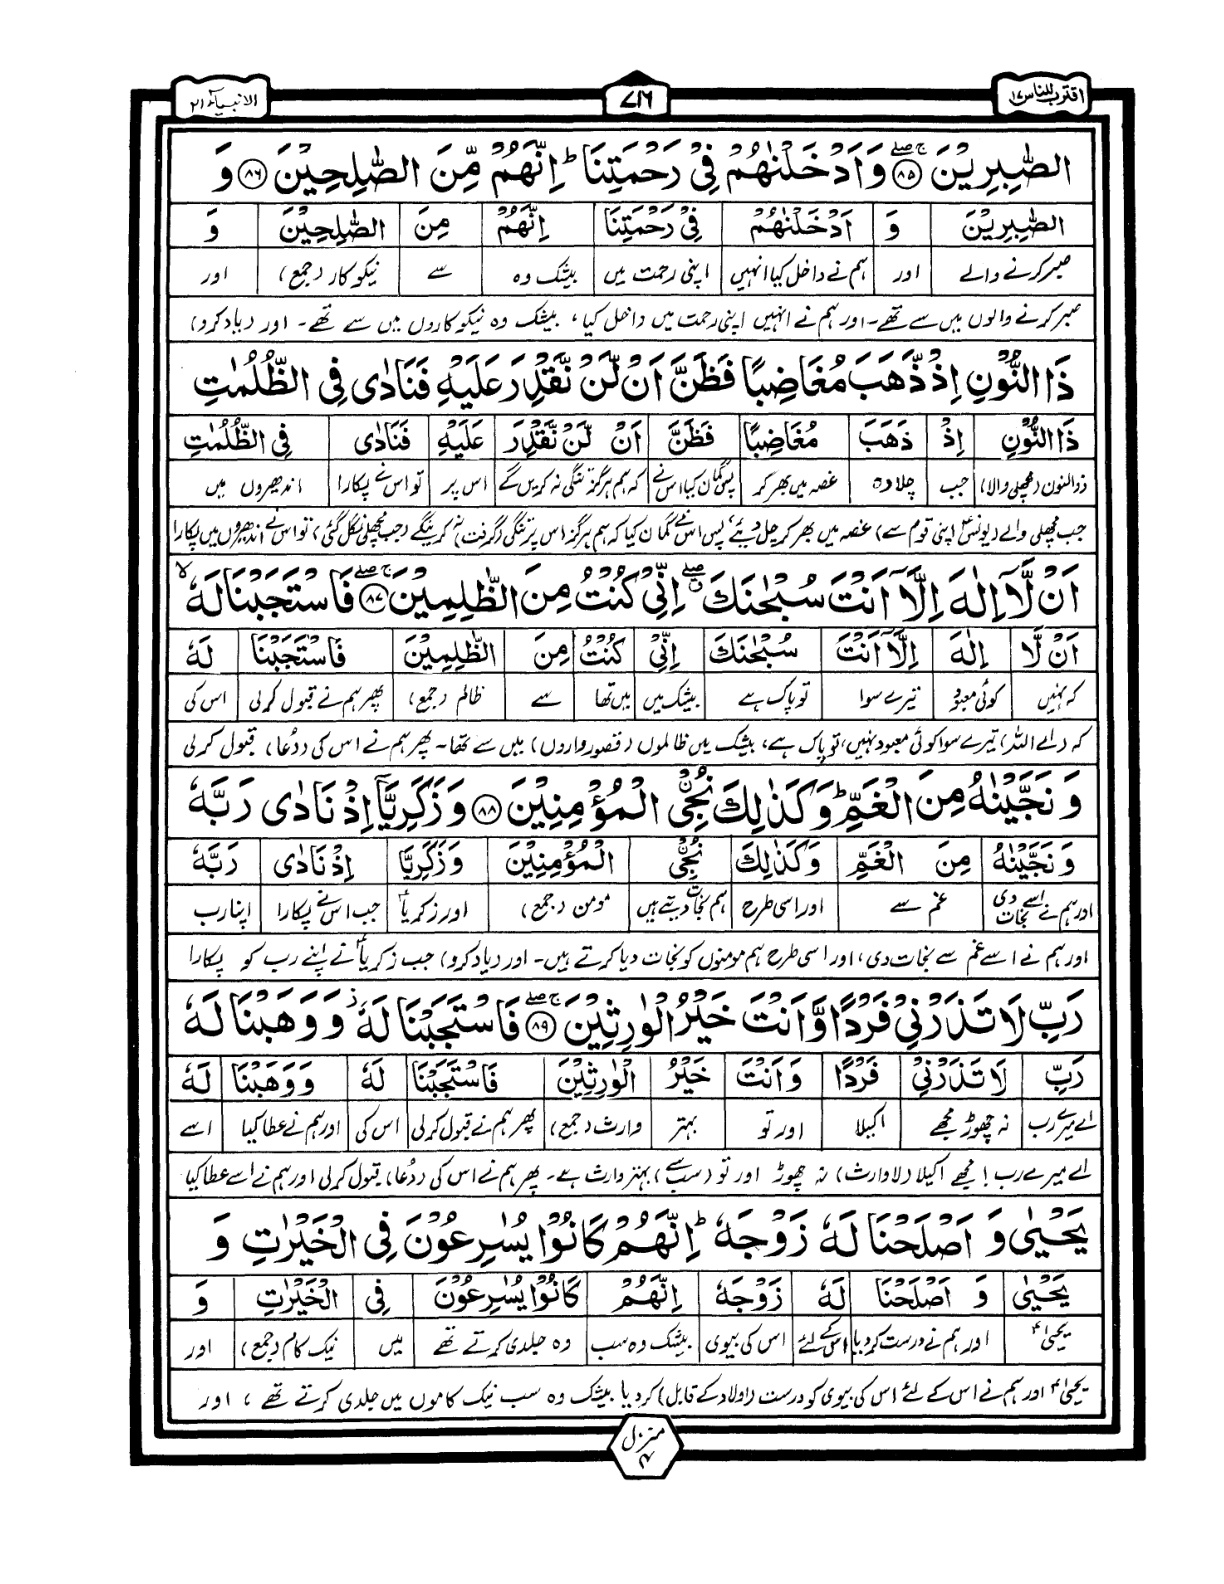 اقترب للناس ۱۷
۷۱۶
الانبیاء ۲۱
الصّٰبِرِیْنَ ۝۸۵ وَاَدْخَلْنٰهُمْ فِیْ رَحْمَتِنَا ؕ اِنَّهُمْ مِّنَ الصّٰلِحِیْنَ ۝۸۶ وَ
الصّٰبِرِیْنَ وَ اَدْخَلْنٰهُمْ فِیْ رَحْمَتِنَا اِنَّهُمْ مِنَ الصّٰلِحِیْنَ وَ
صبر کرنے والے اور ہم نے داخل کیا انہیں اپنی رحمت میں بیشک وہ سے نیکو کار (جمع) اور
صبر کرنے والوں میں سے تھے۔ اور ہم نے انہیں اپنی رحمت میں داخل کیا، بیشک وہ نیکو کاروں میں سے تھے۔ اور (یاد کرو)
ذَا النُّوْنِ اِذْ ذَّهَبَ مُغَاضِبًا فَظَنَّ اَنْ لَّنْ نَّقْدِرَ عَلَیْهِ فَنَادٰی فِی الظُّلُمٰتِ
ذَا النُّوْنِ اِذْ ذَهَبَ مُغَاضِبًا فَظَنَّ اَنْ لَنْ نَقْدِرَ عَلَیْهِ فَنَادٰی فِی الظُّلُمٰتِ
ذوالنون (مچھلی والا) جب چلا وہ غصہ میں بھر کر پس گمان کیا اس نے کہ ہم ہرگز تنگی نہ کریں گے اس پر تو اس نے پکارا اندھیروں میں
جب مچھلی والے (یونسؑ اپنی قوم سے) غصہ میں بھر کر چل دیئے، پس اس نے گمان کیا کہ ہم ہرگز اس پر تنگی (گرفت) نہ کرینگے (جب مچھلی نگل گئی) تو اس نے اندھیروں میں پکارا
اَنْ لَّاۤ اِلٰهَ اِلَّاۤ اَنْتَ سُبْحٰنَكَ ۖ اِنِّیْ كُنْتُ مِنَ الظّٰلِمِیْنَ ۝۸۷ فَاسْتَجَبْنَا لَهٗ ۙ
اَنْ لَّا اِلٰهَ اِلَّاۤ اَنْتَ سُبْحٰنَكَ اِنِّیْ كُنْتُ مِنَ الظّٰلِمِیْنَ فَاسْتَجَبْنَا لَهٗ
کہ نہیں کوئی معبود تیرے سوا تو پاک ہے بیشک میں میں تھا سے ظالم (جمع) پھر ہم نے قبول کر لی اس کی
کہ (اے اللہ) تیرے سوا کوئی معبود نہیں، تو پاک ہے، بیشک میں ظالموں (قصور واروں) میں سے تھا۔ پھر ہم نے اس کی (دُعا) قبول کر لی
وَ نَجَّیْنٰهُ مِنَ الْغَمِّ ؕ وَكَذٰلِكَ نُـْۨجِی الْمُؤْمِنِیْنَ ۝۸۸ وَزَكَرِیَّاۤ اِذْ نَادٰی رَبَّهٗ
وَ نَجَّیْنٰهُ مِنَ الْغَمِّ وَكَذٰلِكَ نُـْۨجِی الْمُؤْمِنِیْنَ وَزَكَرِیَّاۤ اِذْ نَادٰی رَبَّهٗ
اور ہم نے اسے نجات دی غم سے اور اسی طرح ہم نجات دیتے ہیں مومن (جمع) اور زکریاؑ جب اس نے پکارا اپنا رب
اور ہم نے اسے غم سے نجات دی، اور اسی طرح ہم مومنوں کو نجات دیا کرتے ہیں۔ اور (یاد کرو) جب زکریاؑ نے اپنے رب کو پکارا
رَبِّ لَا تَذَرْنِیْ فَرْدًا وَّاَنْتَ خَیْرُ الْوٰرِثِیْنَ ۝۸۹ فَاسْتَجَبْنَا لَهٗ ؗ وَوَهَبْنَا لَهٗ
رَبِّ لَا تَذَرْنِیْ فَرْدًا وَاَنْتَ خَیْرُ الْوٰرِثِیْنَ فَاسْتَجَبْنَا لَهٗ وَوَهَبْنَا لَهٗ
اے میرے رب نہ چھوڑ مجھے اکیلا اور تو بہتر وارث (جمع) پھر ہم نے قبول کر لی اس کی اور ہم نے عطا کیا اسے
اے میرے رب! مجھے اکیلا (لاوارث) نہ چھوڑ اور تو (سب سے) بہتر وارث ہے۔ پھر ہم نے اس کی (دُعا) قبول کر لی اور ہم نے اسے عطا کیا
یَحْیٰی وَ اَصْلَحْنَا لَهٗ زَوْجَهٗ ؕ اِنَّهُمْ كَانُوْا یُسٰرِعُوْنَ فِی الْخَیْرٰتِ وَ
یَحْیٰی وَ اَصْلَحْنَا لَهٗ زَوْجَهٗ اِنَّهُمْ كَانُوْا یُسٰرِعُوْنَ فِی الْخَیْرٰتِ وَ
یحییٰؑ اور ہم نے درست کر دیا اس کے لئے اس کی بیوی بیشک وہ سب وہ جلدی کرتے تھے میں نیک کام (جمع) اور
یحییٰؑ اور ہم نے اس کے لئے اس کی بیوی کو درست (اولاد کے قابل) کر دیا بیشک وہ سب نیک کاموں میں جلدی کرتے تھے، اور
منزل ۴